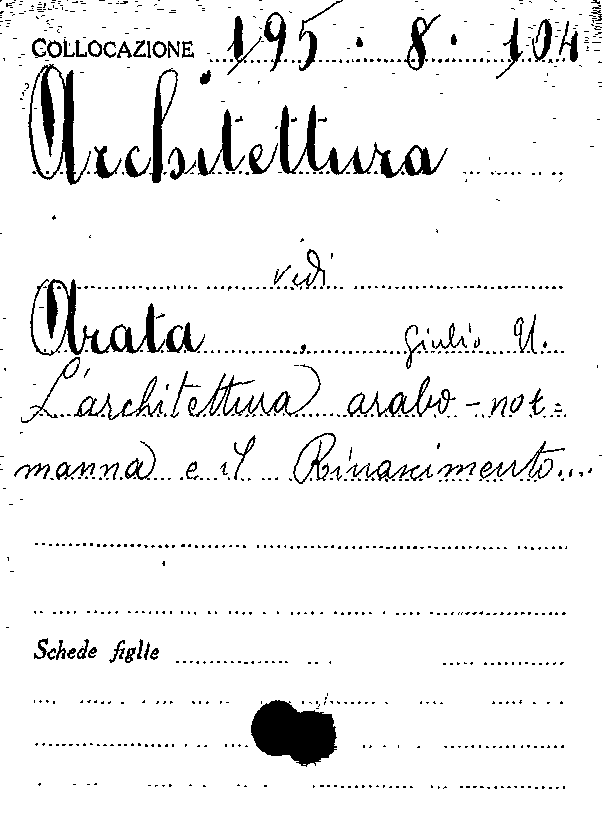 COLLOCAZIONE 195.8.104
Architettura
vedi
Arata Giulio U.
L'architettura arabo-nor=
manna e il Rinascimento...
Schede figlie